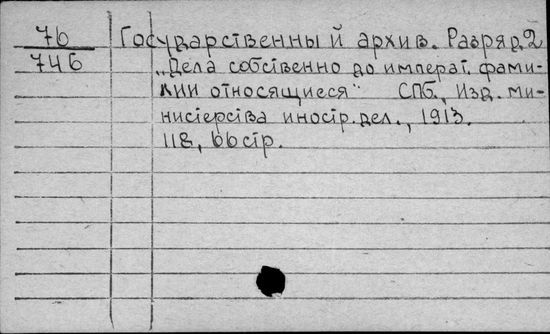 76 Государственный архив. Разряд 2
746 "Дела собственно до императ. фами-
лии относящиеся" СПб., Изд. ми-
нистерства иностр. дел., 1913.
118, 66 стр.